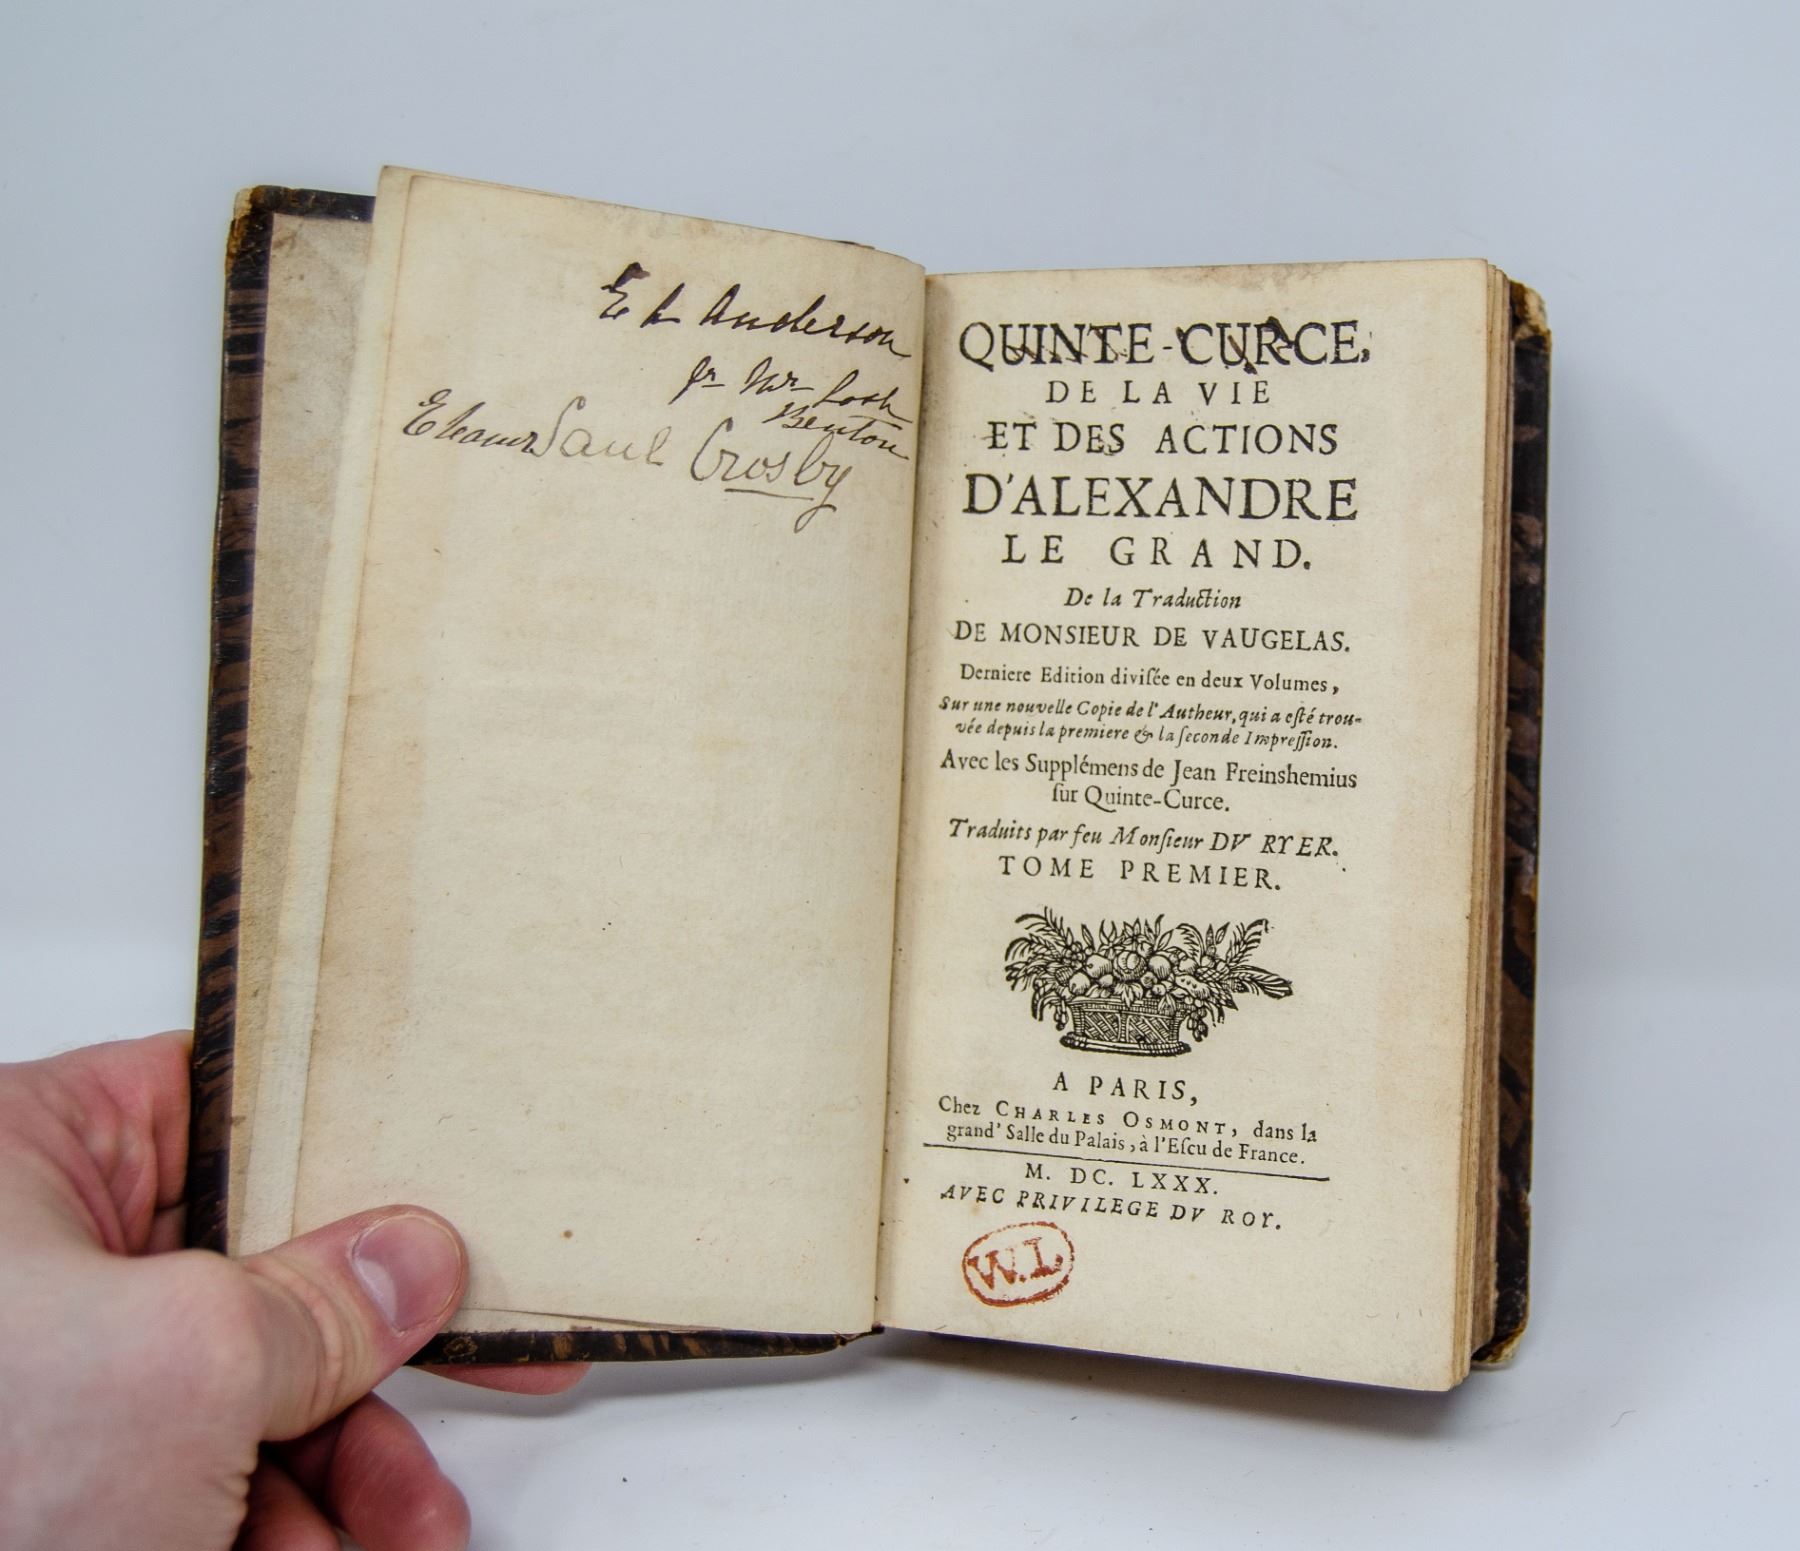 E L Anderson
fr Mr
Benton
Eleanor Saul Crosby
QUINTE-CURCE,
DE LA VIE
ET DES ACTIONS
D'ALEXANDRE
LE GRAND.
De la Traduction
DE MONSIEUR DE VAUGELAS.
Derniere Edition diviſée en deux Volumes,
Sur une nouvelle Copie de l'Autheur, qui a eſté trou-
vée depuis la premiere & la ſeconde Impreſſion.
Avec les Supplémens de Jean Freinshemius
ſur Quinte-Curce.
Traduits par feu Monſieur DV RYER.
TOME PREMIER.
A PARIS,
Chez CHARLES OSMONT, dans la
grand' Salle du Palais, à l'Eſcu de France.
M. DC. LXXX.
AVEC PRIVILEGE DV ROY.
W.L